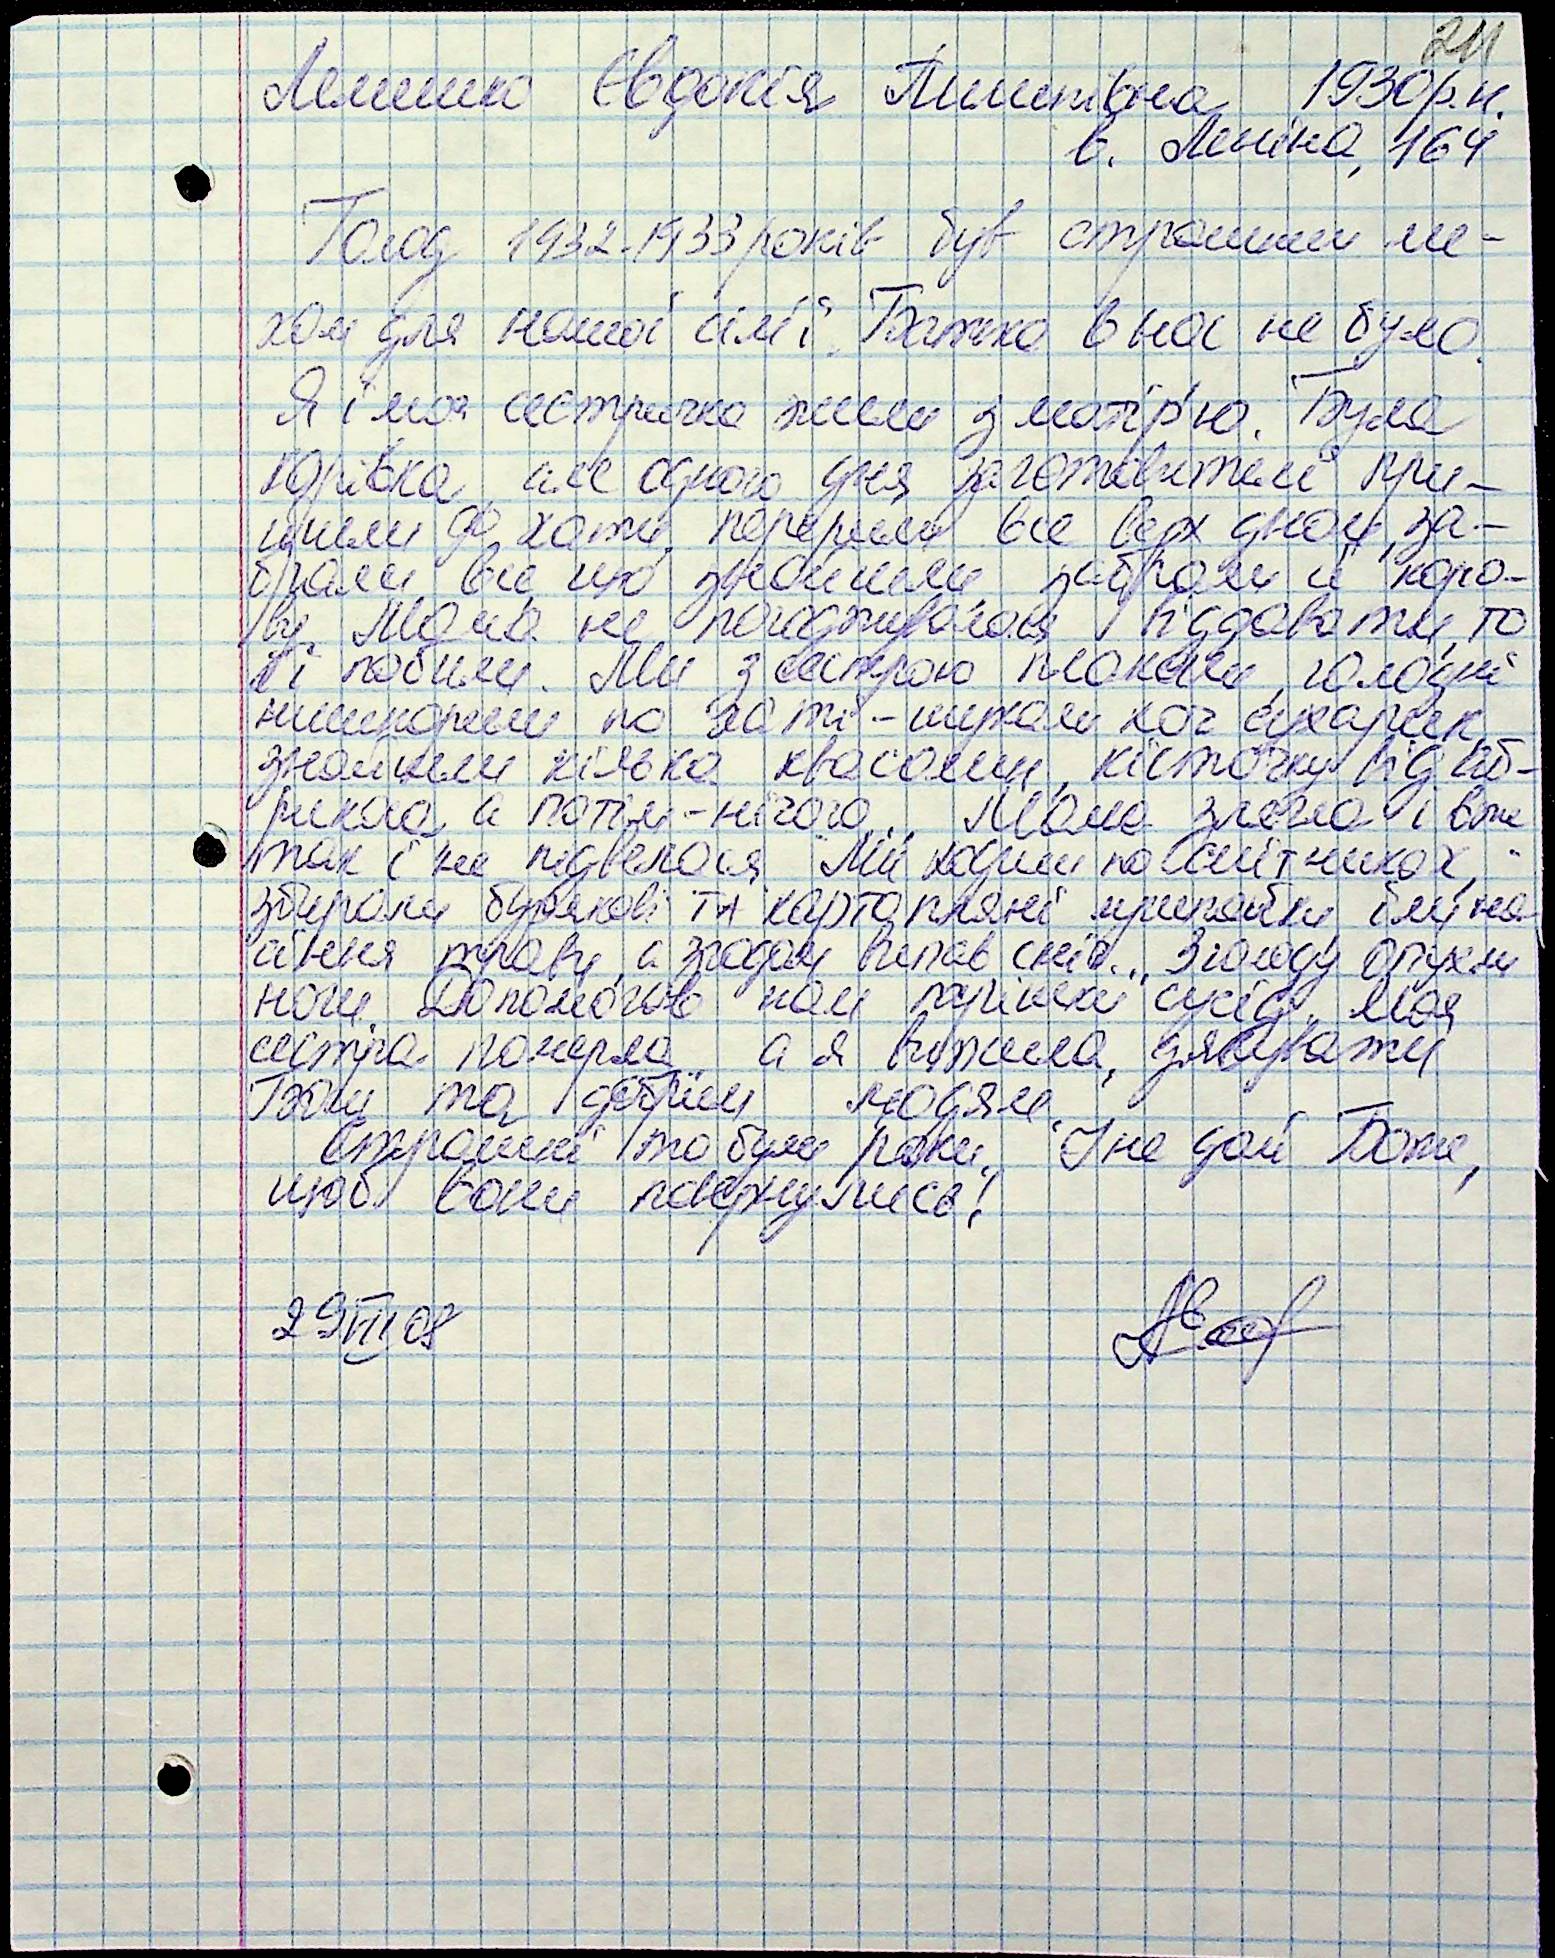 211
Лемешко Євдокія Пилипівна 1930р.н.
в. Леніна, 164
Голод 1932-1933 років був страшним ли-
хом для нашої сім'ї. Батька в нас не було.
Я і моя сестричка жили з матір'ю. Була
корівка, але одного дня заготовителі при-
йшли до хати, перерили все верх дном, за-
брали все, що знайшли, забрали й коро-
ву. Мама не погоджувалась віддавати, то
її побили. Ми з сестрою плакали, голодні
нишпорили по хаті - шукали хоч сухарик,
знайшли кілька квасолин, кісточку від аб-
рикоса, а потім - нічого... Мама злягла і вже
так і не підвелася. Ми ходили по смітниках,
збирали бурякові та картопляні лушпайки, їли на-
сіння, траву, а згодом випав сніг... З голоду опухли
ноги. Допомогав нам тутішній сусід. Моя
сестра померла, а я вижила, дякувати
Богу та добрим людям.
Страшні то були роки. І не дай Боже,
щоб вони повернулись!
29 VII 08